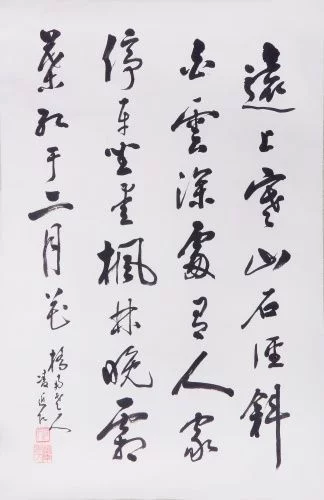 遠上寒山石徑斜
白雲深處有人家
停車坐愛楓林晚霜
葉紅于二月花
凌近仁